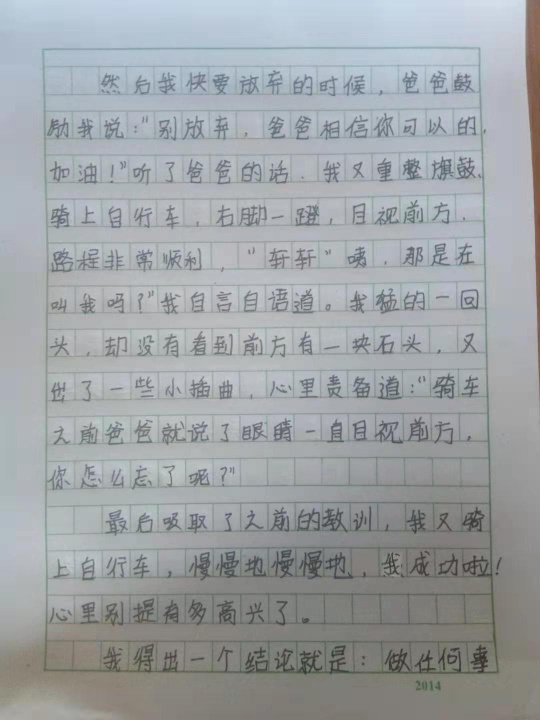 然后我快要放弃的时候，爸爸鼓
励我说："别放弃，爸爸相信你可以的，
加油！"听了爸爸的话．我又重整旗鼓、
骑上自行车，右脚一蹬，目视前方．
路程非常顺利，"轩轩"咦，那是在
叫我吗？"我自言自语道。我猛的一回
头，却没有看到前方有一块石头，又
出了一些小插曲，心里责备道："骑车
之前爸爸就说了眼睛一直目视前方，
你怎么忘了呢？"
最后吸取了之前的教训，我又骑
上自行车，慢慢地慢慢地，我成功啦！
心里别提有多高兴了。
我得出一个结论就是：做任何事
2014